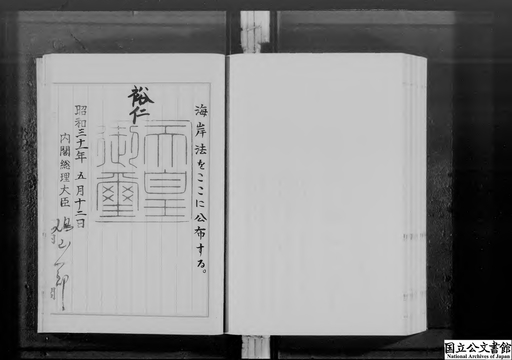 海岸法をここに公布する。
裕仁
天皇
御璽
昭和三十一年五月十二日
内閣総理大臣 鳩山一郎
国立公文書館
National Archives of Japan